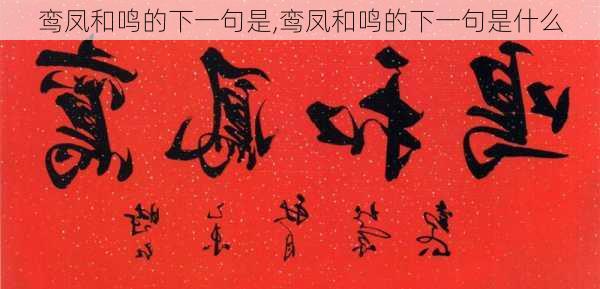 鸾凤和鸣的下一句是,鸾凤和鸣的下一句是什么
鸞鳳和鳴